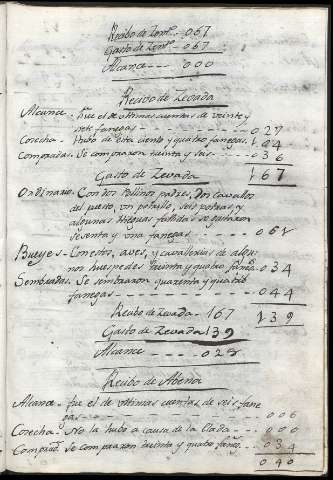 Recibo de Zent.º - 067
Gasto de Zent.º - 067
Alcance - - - 000
Recivo de Zevada
Alcance - fue el de ultimas cuentas de veinte y
siete fanegas - - - - - - 027
Cosecha - Hubo de esta ciento y quatro fanegas. 104
Compradas. Se compraron treinta y seis - - - 036
Gasto de Zevada 167
Ordinario. Con dos Pollinos padres, Dos Cavallos
del puesto, un potrillo, seis potras y
algunas Yeguas se gastaron
sesenta y una fanegas - - - 061
Bueyes - Con estos, aves, y cavallerias de algu-
nos huespedes treinta y quatro faneg.s 034
Sembradas. Se sembraron quarenta y quatro
fanegas - - - - - - 044
Recibo de Zevada - 167 139
Gasto de Zevada 139
Alcance - - - - 028
Recibo de Abena
Alcance - fue el de ultimas cuentas de seis fane
gas - - - - - - 006
Cosecha - No la hubo a causa de la Elada - - 000
Comprad.s Se compraron treinta y quatro faneg.s 034
040